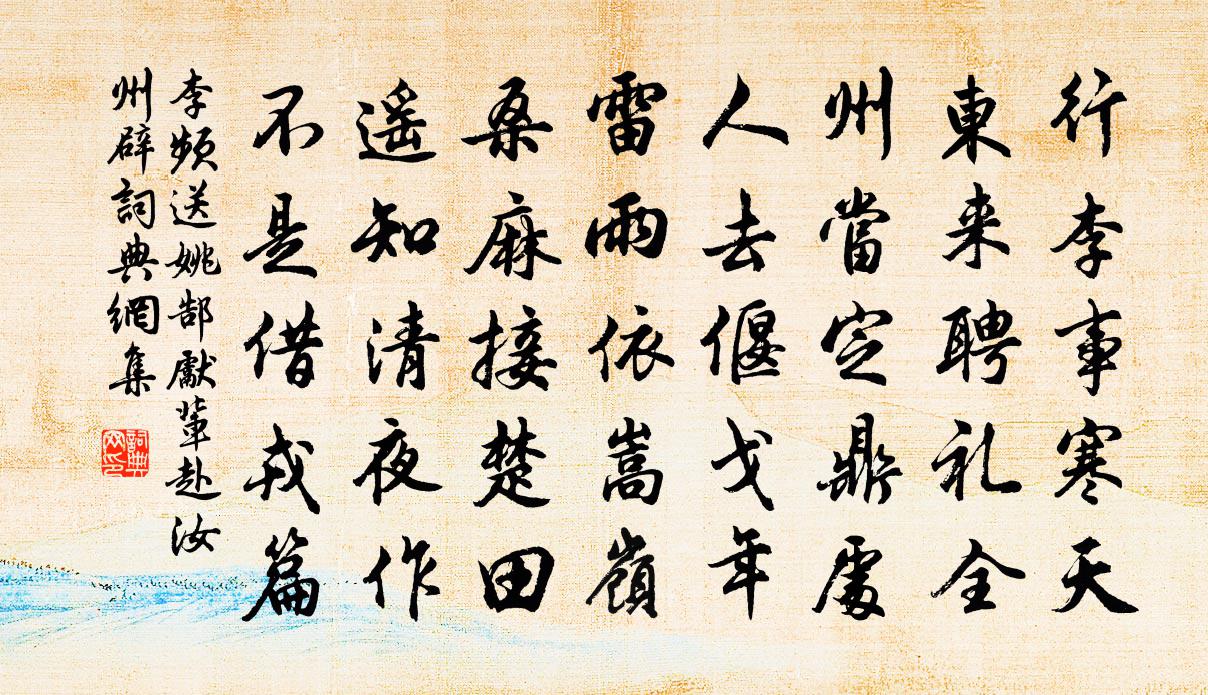 行李事寒天
東来聘礼全
州當定鼎處
人去偃戈年
雷雨依嵩嶺
桑麻接楚田
遥知清夜作
不是借戎篇
李頻送姚郜獻輩赴汝
州辟詞典網集
詞典